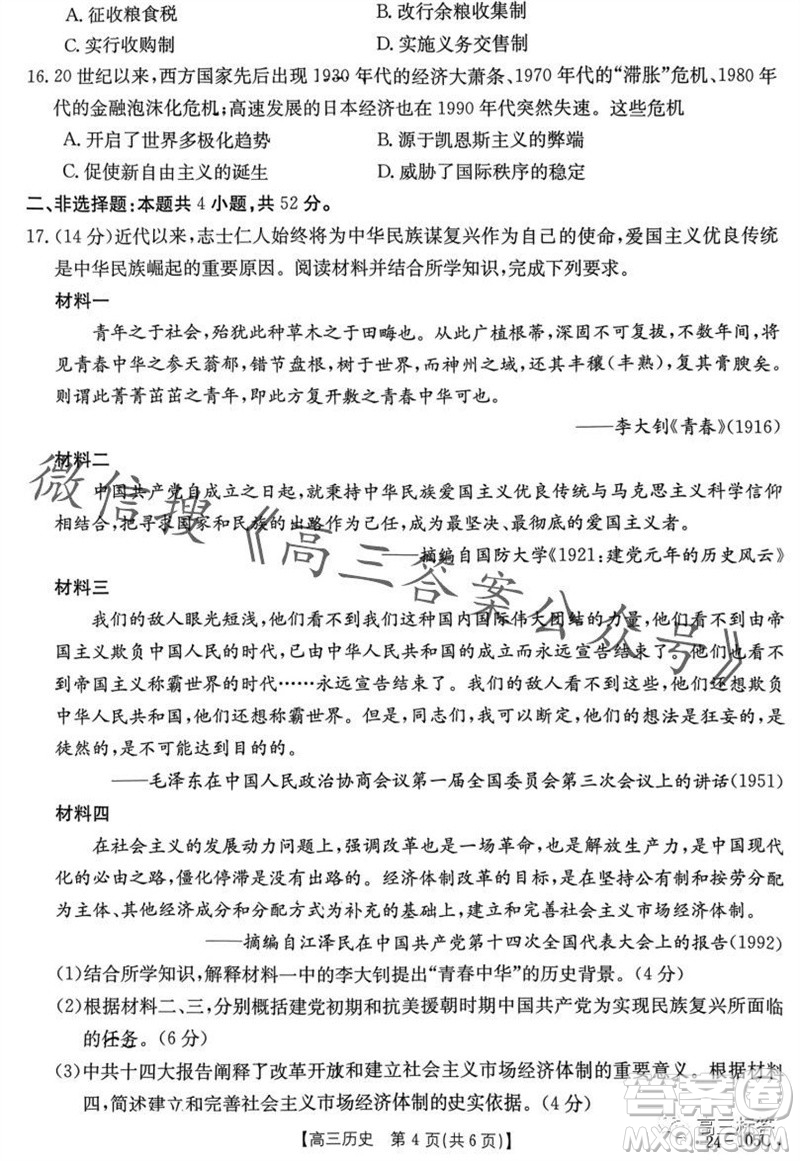 A. 征收粮食税 B. 改行余粮收集制
C. 实行收购制 D. 实施义务交售制
16. 20 世纪以来,西方国家先后出现 1930 年代的经济大萧条、1970 年代的“滞胀”危机、1980 年
代的金融泡沫化危机;高速发展的日本经济也在 1990 年代突然失速。这些危机
A. 开启了世界多极化趋势 B. 源于凯恩斯主义的弊端
C. 促使新自由主义的诞生 D. 威胁了国际秩序的稳定
二、非选择题:本题共 4 小题,共 52 分。
17. (14 分)近代以来,志士仁人始终将为中华民族谋复兴作为自己的使命,爱国主义优良传统
是中华民族崛起的重要原因。阅读材料并结合所学知识,完成下列要求。
材料一
青年之于社会,殆犹此种草木之于田畴也。从此广植根蒂,深固不可复拔,不数年间,将
见青春中华之参天蓊郁,错节盘根,树于世界,而神州之域,还其丰穰(丰熟),复其膏腴矣。
则谓此菁菁茁茁之青年,即此方复开敷之青春中华可也。
——李大钊《青春》(1916)
材料二
中国共产党自成立之日起,就坚持中华民族爱国主义优良传统与马克思主义科学信仰
相结合,把寻求国家和民族的出路作为己任,是最坚决、最彻底的爱国主义者。
——摘编自国防大学《1921:建党元年的历史风云》
材料三
我们的敌人眼光短浅,他们看不到我们这种国内国际伟大团结的力量,他们看不到由帝
国主义欺负中国人民的时代,已由中华人民共和国的成立而永远宣告结束了。他们看不到
由帝国主义称霸世界的时代……永远宣告结束了。我们的敌人看不到这些,他们还想欺负
中华人民共和国,他们还想称霸世界。但是,同志们,我可以断定,他们的想法是狂妄的,是
徒然的,是不可能达到目的的。
——毛泽东在中国人民政治协商会议第一届全国委员会第三次会议上的讲话(1951)
材料四
在社会主义的发展动力问题上,强调改革也是一场革命,也是解放生产力,是中国现代
化的必由之路,僵化停滞是没有出路的。经济体制改革的目标,是在坚持公有制和按劳分配
为主体,其他经济成分和分配方式为补充的基础上,建立和完善社会主义市场经济体制。
——摘编自江泽民在中国共产党第十四次全国代表大会上的报告(1992)
(1)结合所学知识,解释材料一中的李大钊提出“青春中华”的历史背景。(4 分)
(2)根据材料二、三,分别概括建党初期和抗美援朝时期中国共产党为实现民族复兴作出
的任务。(6 分)
(3)中共十四大报告阐释了改革开放和建立社会主义市场经济体制的重要意义。根据材料
四,简述建立和完善社会主义市场经济体制的史实依据。(4 分)
【高三历史 第 4 页(共 6 页)】
24-105C
微信搜《高三答案公众号》
高三标答
答案圈
MXQE.COM